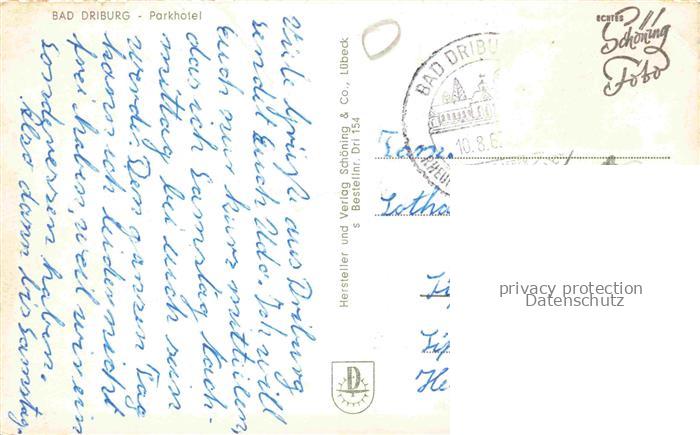 BAD DRIBURG - Parkhotel
Viele Grüße aus Driburg
sendet Euch Udo. Ich will
Euch nur kurz mitteilen,
das ich Samstag Nach-
mittag bei Euch sein
werde. Den ganzen Tag
kann ich leider nicht
frei haben, weil wir ein
haben.
Also dann bis Samstag.
Hersteller und Verlag Schöning & Co., Lübeck
s Bestellnr. Dri 154
ECHTES
Schöning
Foto
BAD DRIBU
10.8.6
Fam.
Lotha
privacy protection
Datenschutz